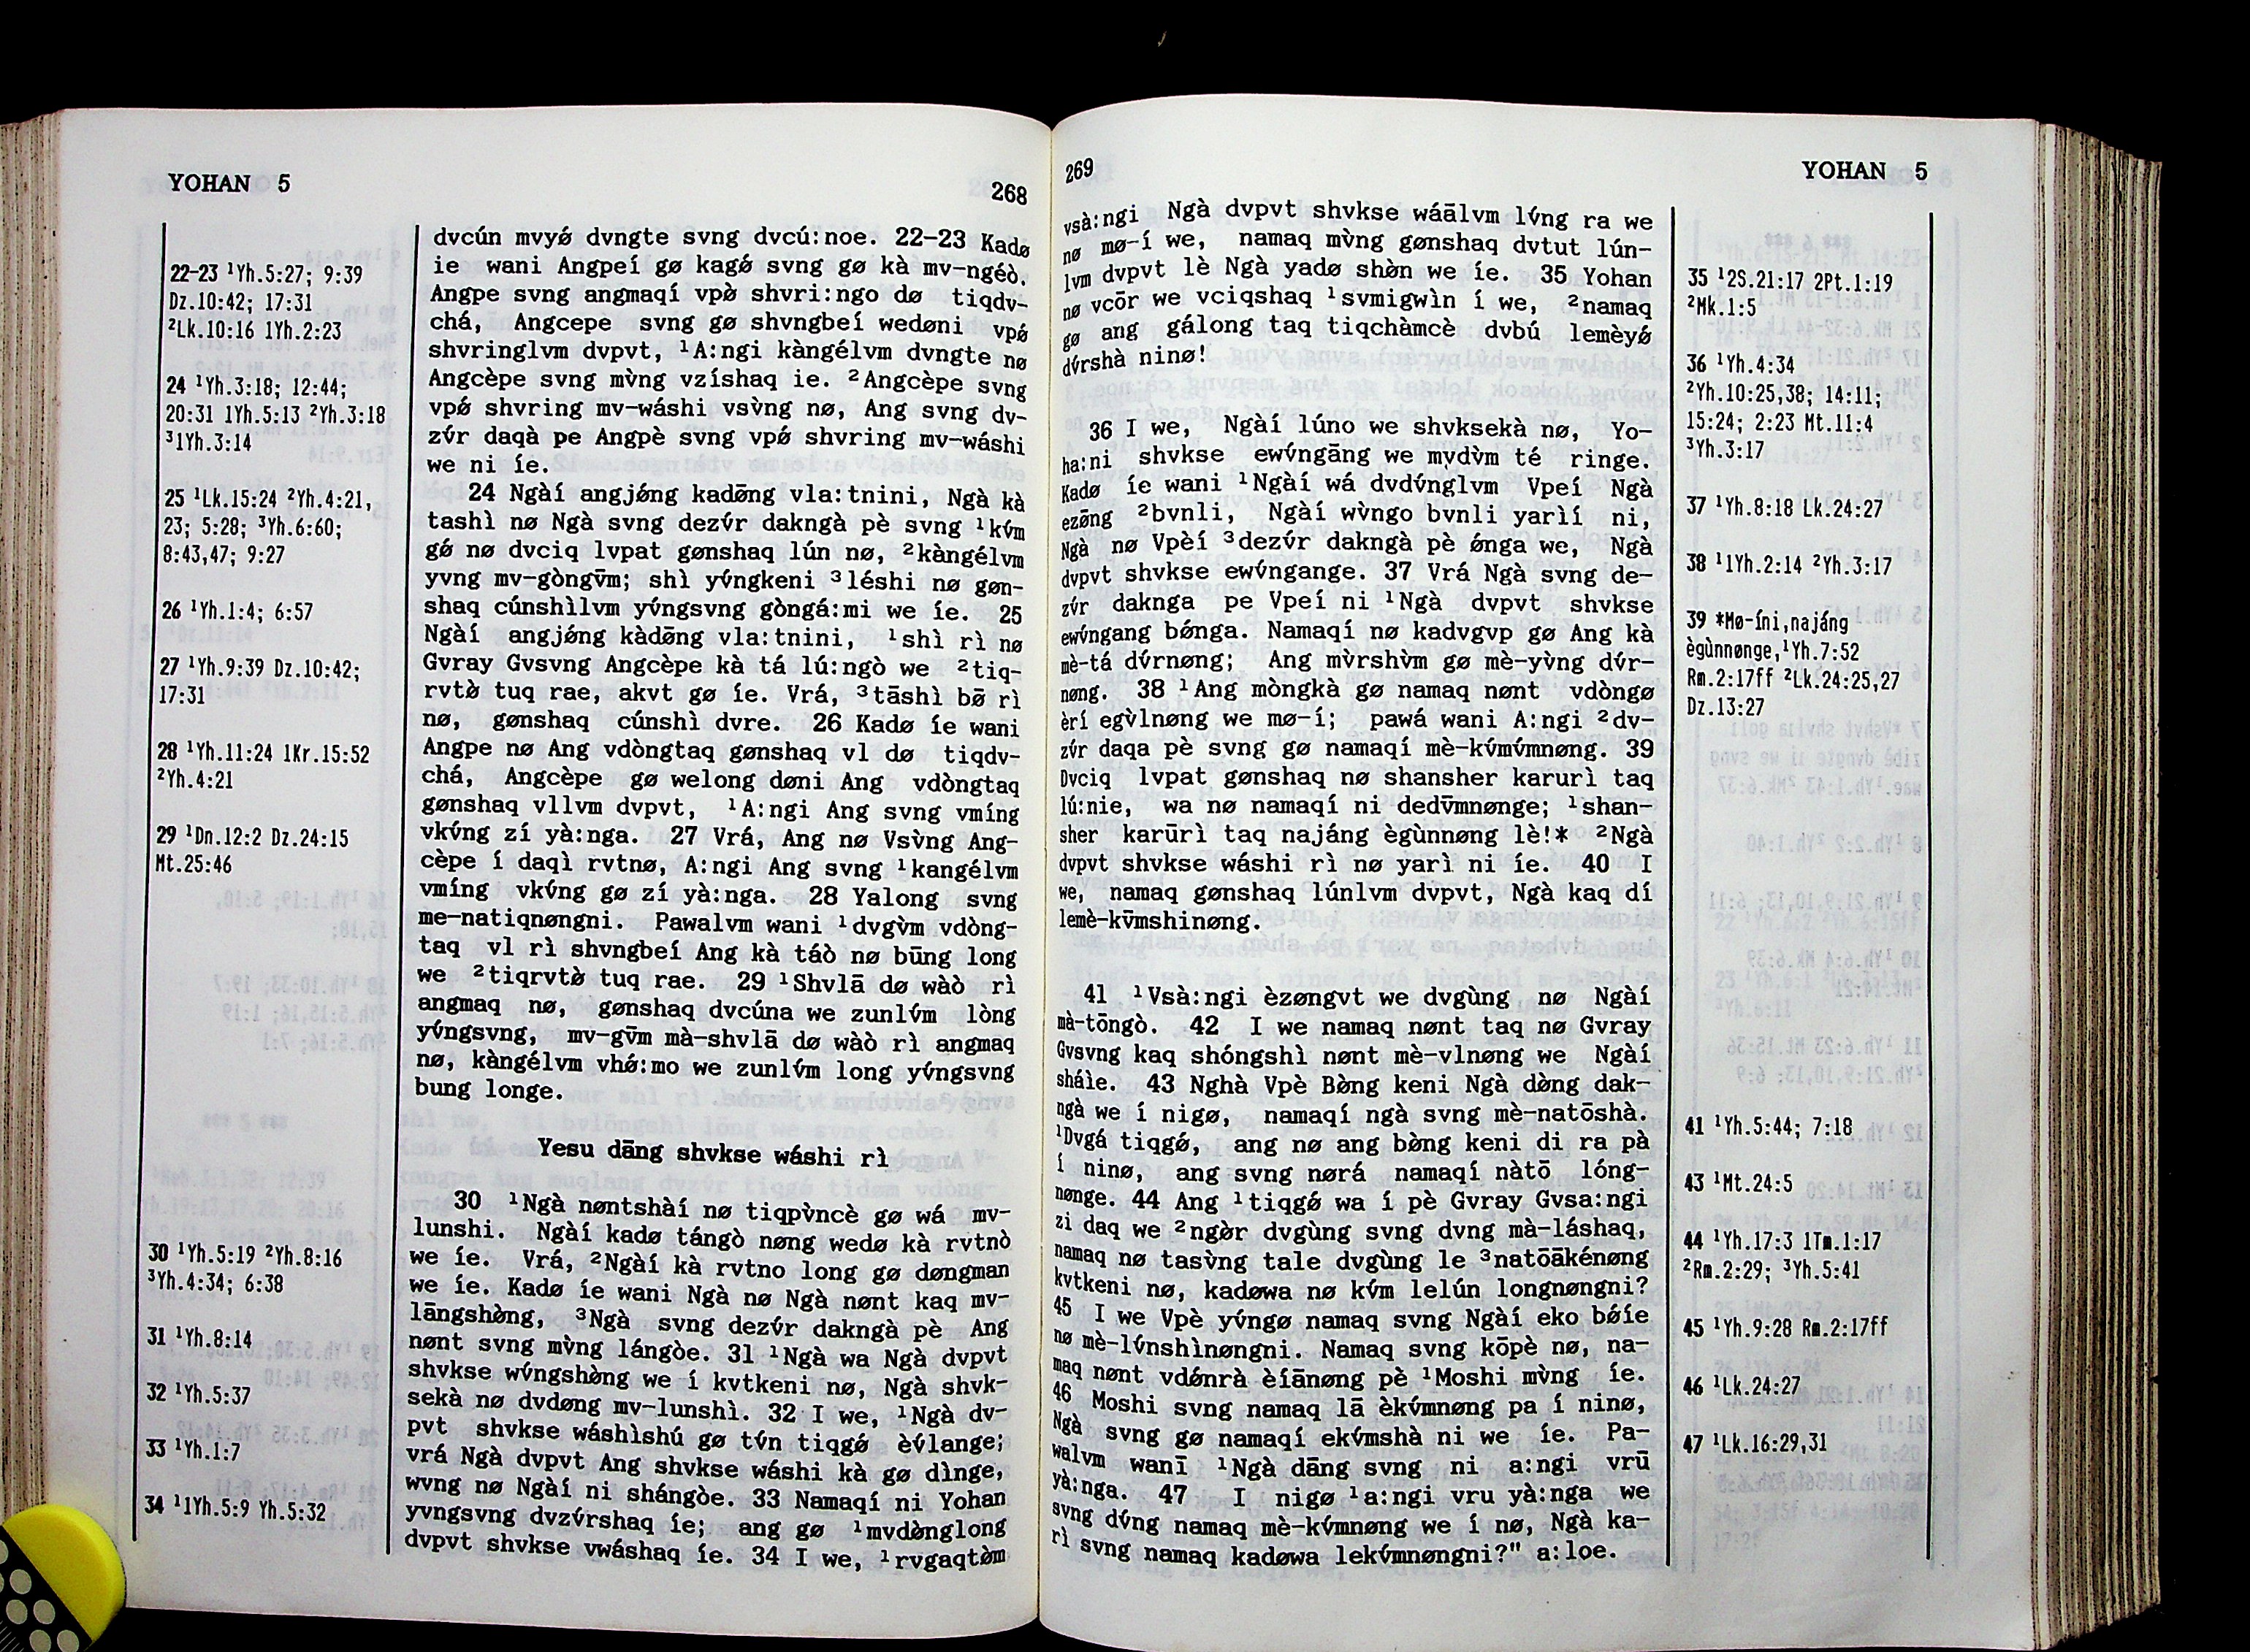 YOHAN 5
268
22-23 ¹Yh.5:27; 9:39
Dz.10:42; 17:31
²Lk.10:16 1Yh.2:23
24 ¹Yh.3:18; 12:44;
20:31 1Yh.5:13 ²Yh.3:18
³1Yh.3:14
25 ¹Lk.15:24 ²Yh.4:21,
23; 5:28; ³Yh.6:60;
8:43,47; 9:27
26 ¹Yh.1:4; 6:57
27 ¹Yh.9:39 Dz.10:42;
17:31
28 ¹Yh.11:24 1Kr.15:52
²Yh.4:21
29 ¹Dn.12:2 Dz.24:15
Mt.25:46
30 ¹Yh.5:19 ²Yh.8:16
³Yh.4:34; 6:38
31 ¹Yh.8:14
32 ¹Yh.5:37
33 ¹Yh.1:7
34 ¹1Yh.5:9 Yh.5:32
dvcún mvyǿ dvngte svng dvcú:noe. 22-23 Kadø
ie wani Angpeí gø kagǿ svng gø kà mv-ngéò.
Angpe svng angmaqí vpø̀ shvri:ngo dø tiqdv-
chá, Angcepe svng gø shvngbeí wedøni vpǿ
shvringlvm dvpvt, ¹A:ngi kàngélvm dvngte nø
Angcèpe svng mv̀ng vzíshaq ie. ²Angcèpe svng
vpǿ shvring mv-wáshi vsv̀ng nø, Ang svng dv-
zv́r daqà pe Angpè svng vpǿ shvring mv-wáshi
we ni íe.
24 Ngàí angjǿng kadø̄ng vla:tnini, Ngà kà
tashì nø Ngà svng dezv́r dakngà pè svng ¹kv́m
gǿ nø dvciq lvpat gønshaq lún nø, ²kàngélvm
yvng mv-gòngv̄m; shì yv́ngkeni ³léshi nø gøn-
shaq cúnshìlvm yv́ngsvng gòngá:mi we íe. 25
Ngàí angjǿng kàdø̄ng vla:tnini, ¹shì rì nø
Gvray Gvsvng Angcèpe kà tá lú:ngò we ²tiq-
rvtø̀ tuq rae, akvt gø íe. Vrá, ³tāshì bø̄ rì
nø, gønshaq cúnshì dvre. 26 Kadø íe wani
Angpe nø Ang vdòngtaq gønshaq vl dø tiqdv-
chá, Angcèpe gø welong døni Ang vdòngtaq
gønshaq vllvm dvpvt, ¹A:ngi Ang svng vmíng
vkv́ng zí yà:nga. 27 Vrá, Ang nø Vsv̀ng Ang-
cèpe í daqì rvtnø, A:ngi Ang svng ¹kangélvm
vmíng vkv́ng gø zí yà:nga. 28 Yalong svng
me-natiqnøngni. Pawalvm wani ¹dvgv̀m vdòng-
taq vl rì shvngbeí Ang kà táò nø būng long
we ²tiqrvtø̀ tuq rae. 29 ¹Shvlā dø wàò rì
angmaq nø, gønshaq dvcúna we zunlv́m lòng
yv́ngsvng, mv-gv̄m mà-shvlā dø wàò rì angmaq
nø, kàngélvm vhǿ:mo we zunlv́m long yv́ngsvng
bung longe.
Yesu dāng shvkse wáshi rì
30 ¹Ngà nøntshàí nø tiqpv̀ncè gø wá mv-
lunshi. Ngàí kadø tángò nøng wedø kà rvtnò
we íe. Vrá, ²Ngàí kà rvtno long gø døngman
we íe. Kadø íe wani Ngà nø Ngà nønt kaq mv-
lāngshø̀ng, ³Ngà svng dezv́r dakngà pè Ang
nønt svng mv̀ng lángòe. 31 ¹Ngà wa Ngà dvpvt
shvkse wv́ngshø̀ng we í kvtkeni nø, Ngà shvk-
sekà nø dvdøng mv-lunshì. 32 I we, ¹Ngà dv-
pvt shvkse wáshìshú gø tv́n tiqgǿ èv́lange;
vrá Ngà dvpvt Ang shvkse wáshi kà gø dìnge,
wvng nø Ngàí ni shángòe. 33 Namaqí ni Yohan
yvngsvng dvzv́rshaq íe; ang gø ¹mvdø̀nglong
dvpvt shvkse vwáshaq íe. 34 I we, ¹rvgaqtø̀m
269
YOHAN 5
vsà:ngi Ngà dvpvt shvkse wáālvm lv́ng ra we
nø mø-í we, namaq mv̀ng gønshaq dvtut lún-
lvm dvpvt lè Ngà yadø shø̀n we íe. 35 Yohan
nø vcōr we vciqshaq ¹svmigwìn í we, ²namaq
gø ang gálong taq tiqchàmcè dvbú lemèyǿ
dv́rshà ninø!
36 I we, Ngàí lúno we shvksekà nø, Yo-
ha:ni shvkse ewv́ngāng we mvdv̀m té ringe.
Kadø íe wani ¹Ngàí wá dvdv́nglvm Vpeí Ngà
ezø̄ng ²bvnli, Ngàí wv̀ngo bvnli yarìí ni,
Ngà nø Vpèí ³dezv́r dakngà pè ǿnga we, Ngà
dvpvt shvkse ewv́ngange. 37 Vrá Ngà svng de-
zv́r daknga pe Vpeí ni ¹Ngà dvpvt shvkse
ewv́ngang bǿnga. Namaqí nø kadvgvp gø Ang kà
mè-tá dv́rnøng; Ang mv̀rshv̀m gø mè-yv̀ng dv́r-
nøng. 38 ¹Ang mòngkà gø namaq nønt vdòngø
èrí egv̀lnøng we mø-í; pawá wani A:ngi ²dv-
zv́r daqa pè svng gø namaqí mè-kv́mv́mnøng. 39
Dvciq lvpat gønshaq nø shansher karurì taq
lú:nie, wa nø namaqí ni dedv̄mnønge; ¹shan-
sher karūrì taq najáng ègùnnøng lè!* ²Ngà
dvpvt shvkse wáshi rì nø yarì ni íe. 40 I
we, namaq gønshaq lúnlvm dvpvt, Ngà kaq dí
lemè-kv̄mshinøng.
41 ¹Vsà:ngi èzøngvt we dvgùng nø Ngàí
mà-tōngò. 42 I we namaq nønt taq nø Gvray
Gvsvng kaq shóngshì nønt mè-vlnøng we Ngàí
sháìe. 43 Nghà Vpè Bø̀ng keni Ngà dø̀ng dak-
ngà we í nigø, namaqí ngà svng mè-natōshà.
¹Dvgá tiqgǿ, ang nø ang bø̀ng keni di ra pà
í ninø, ang svng nørá namaqí nàtō lóng-
nønge. 44 Ang ¹tiqgǿ wa í pè Gvray Gvsa:ngi
zi daq we ²ngø̀r dvgùng svng dvng mà-láshaq,
namaq nø tasv̀ng tale dvgùng le ³natōākénøng
kvtkeni nø, kadøwa nø kv́m lelún longnøngni?
45 I we Vpè yv́ngø namaq svng Ngàí eko bǿíe
nø mè-lv́nshìnøngni. Namaq svng kōpè nø, na-
maq nønt vdǿnrà èíānøng pè ¹Moshi mv̀ng íe.
46 Moshi svng namaq lā èkv́mnøng pa í ninø,
Ngà svng gø namaqí ekv́mshà ni we íe. Pa-
walvm wanī ¹Ngà dāng svng ni a:ngi vrū
yà:nga. 47 I nigø ¹a:ngi vru yà:nga we
svng dv́ng namaq mè-kv́mnøng we í nø, Ngà ka-
rì svng namaq kadøwa lekv́mnøngni?" a:loe.
35 ¹2S.21:17 2Pt.1:19
²Mk.1:5
36 ¹Yh.4:34
²Yh.10:25,38; 14:11;
15:24; 2:23 Mt.11:4
³Yh.3:17
37 ¹Yh.8:18 Lk.24:27
38 ¹1Yh.2:14 ²Yh.3:17
39 *Mø-íni,najáng
ègùnnønge,¹Yh.7:52
Rm.2:17ff ²Lk.24:25,27
Dz.13:27
41 ¹Yh.5:44; 7:18
43 ¹Mt.24:5
44 ¹Yh.17:3 1Tm.1:17
²Rm.2:29; ³Yh.5:41
45 ¹Yh.9:28 Rm.2:17ff
46 ¹Lk.24:27
47 ¹Lk.16:29,31